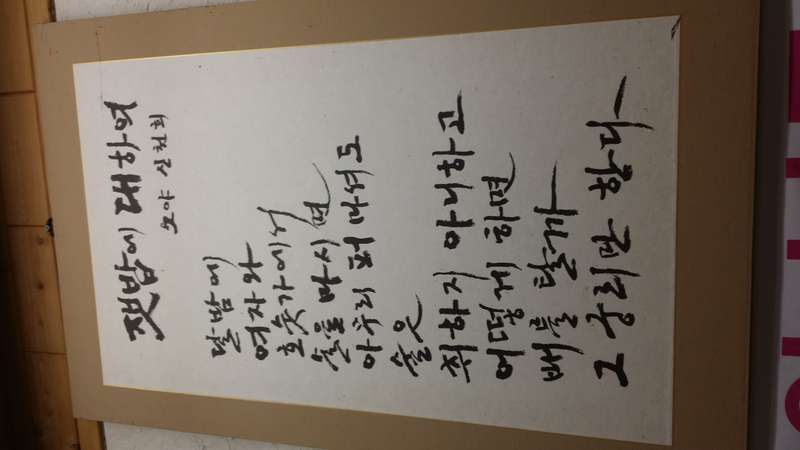 잿밥에 대하여
소야 신천희
달밤에
여자와
호숫가에서
술을 마시면
아무리 퍼 마셔도
술은
취하지 아니하고
어떻게 하면
배를 탈까
그 궁리만 한다